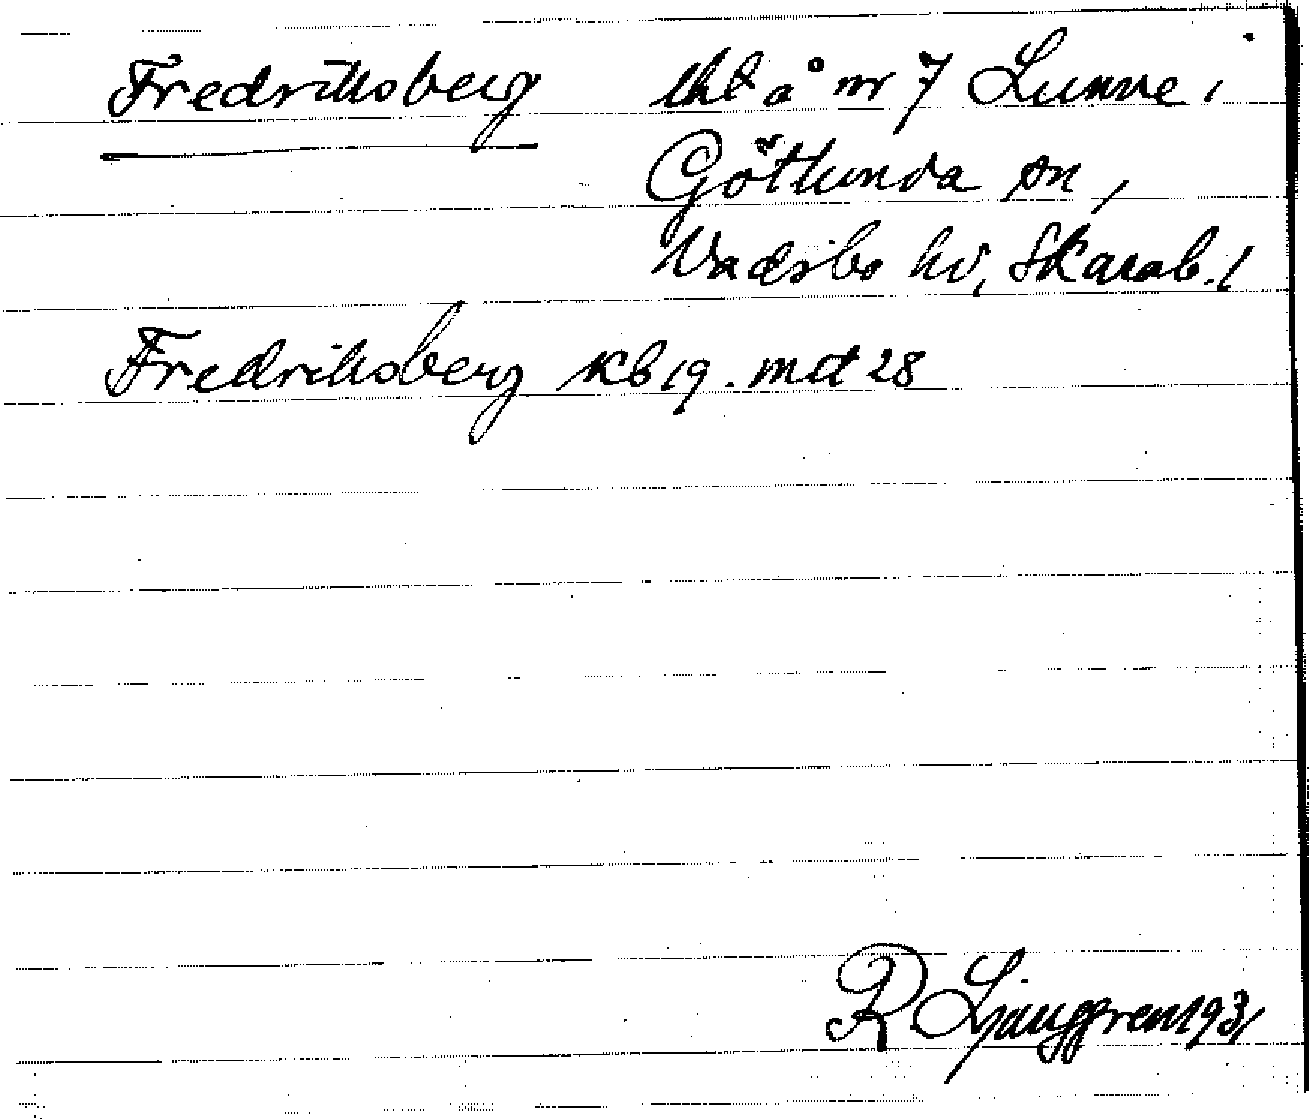 Fredriksberg lht å nr 7 Lunne i
Götlunda sn,
Vadsbo hd, Skarab. l
Fredriksberg kb 19. mct 28
R Ljunggren 1931